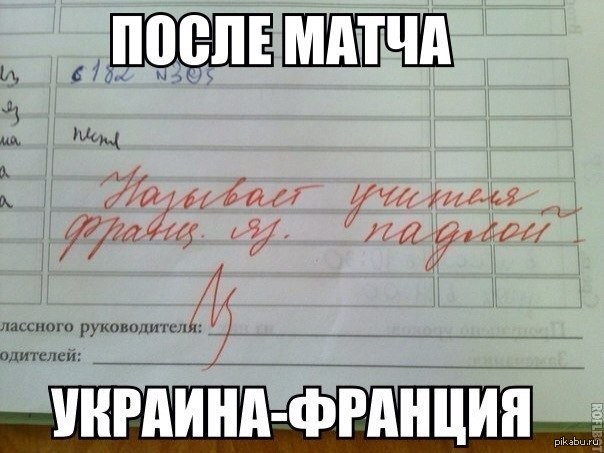 ПОСЛЕ МАТЧА
с 182 N305
яз
ма песня
а
а Называет учителя
франц. яз. падлой
лассного руководителя:
одителей:
УКРАИНА-ФРАНЦИЯ
pikabu.ru